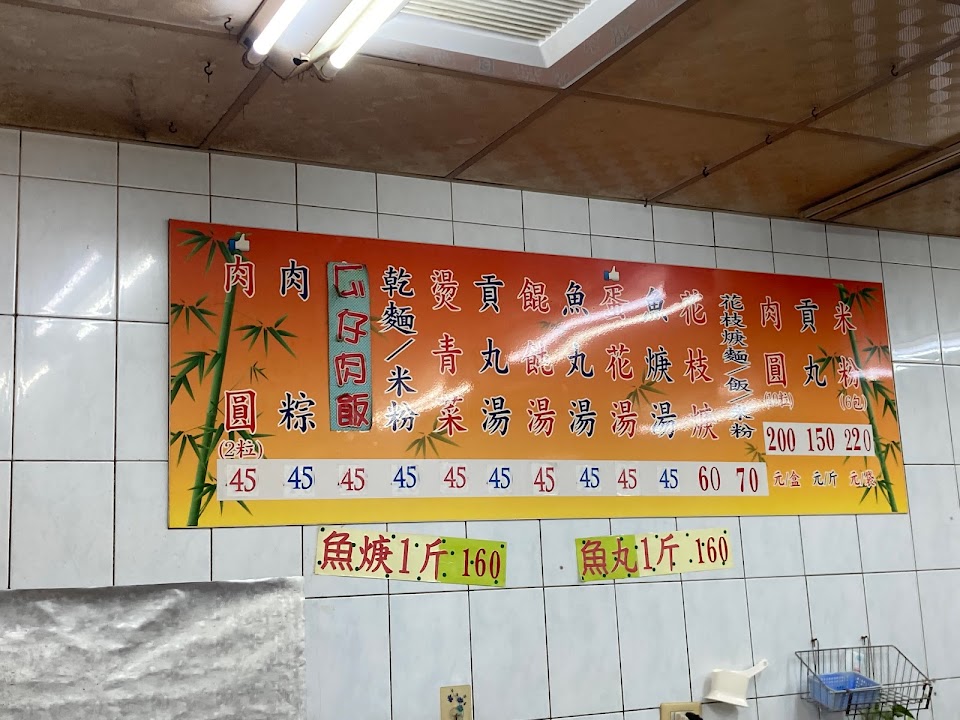 肉圓(2粒) 45
肉粽 45
叭仔肉飯 45
乾麵/米粉 45
燙青菜 45
貢丸湯 45
餛飩湯 45
魚丸湯 45
蛋花湯 45
魚焿湯 45
花枝焿 60
花枝焿麵/飯/米粉 70
肉圓 200 元/盒
貢丸 150 元/斤
米粉(6包) 220 元/袋
魚焿1斤 160
魚丸1斤 160